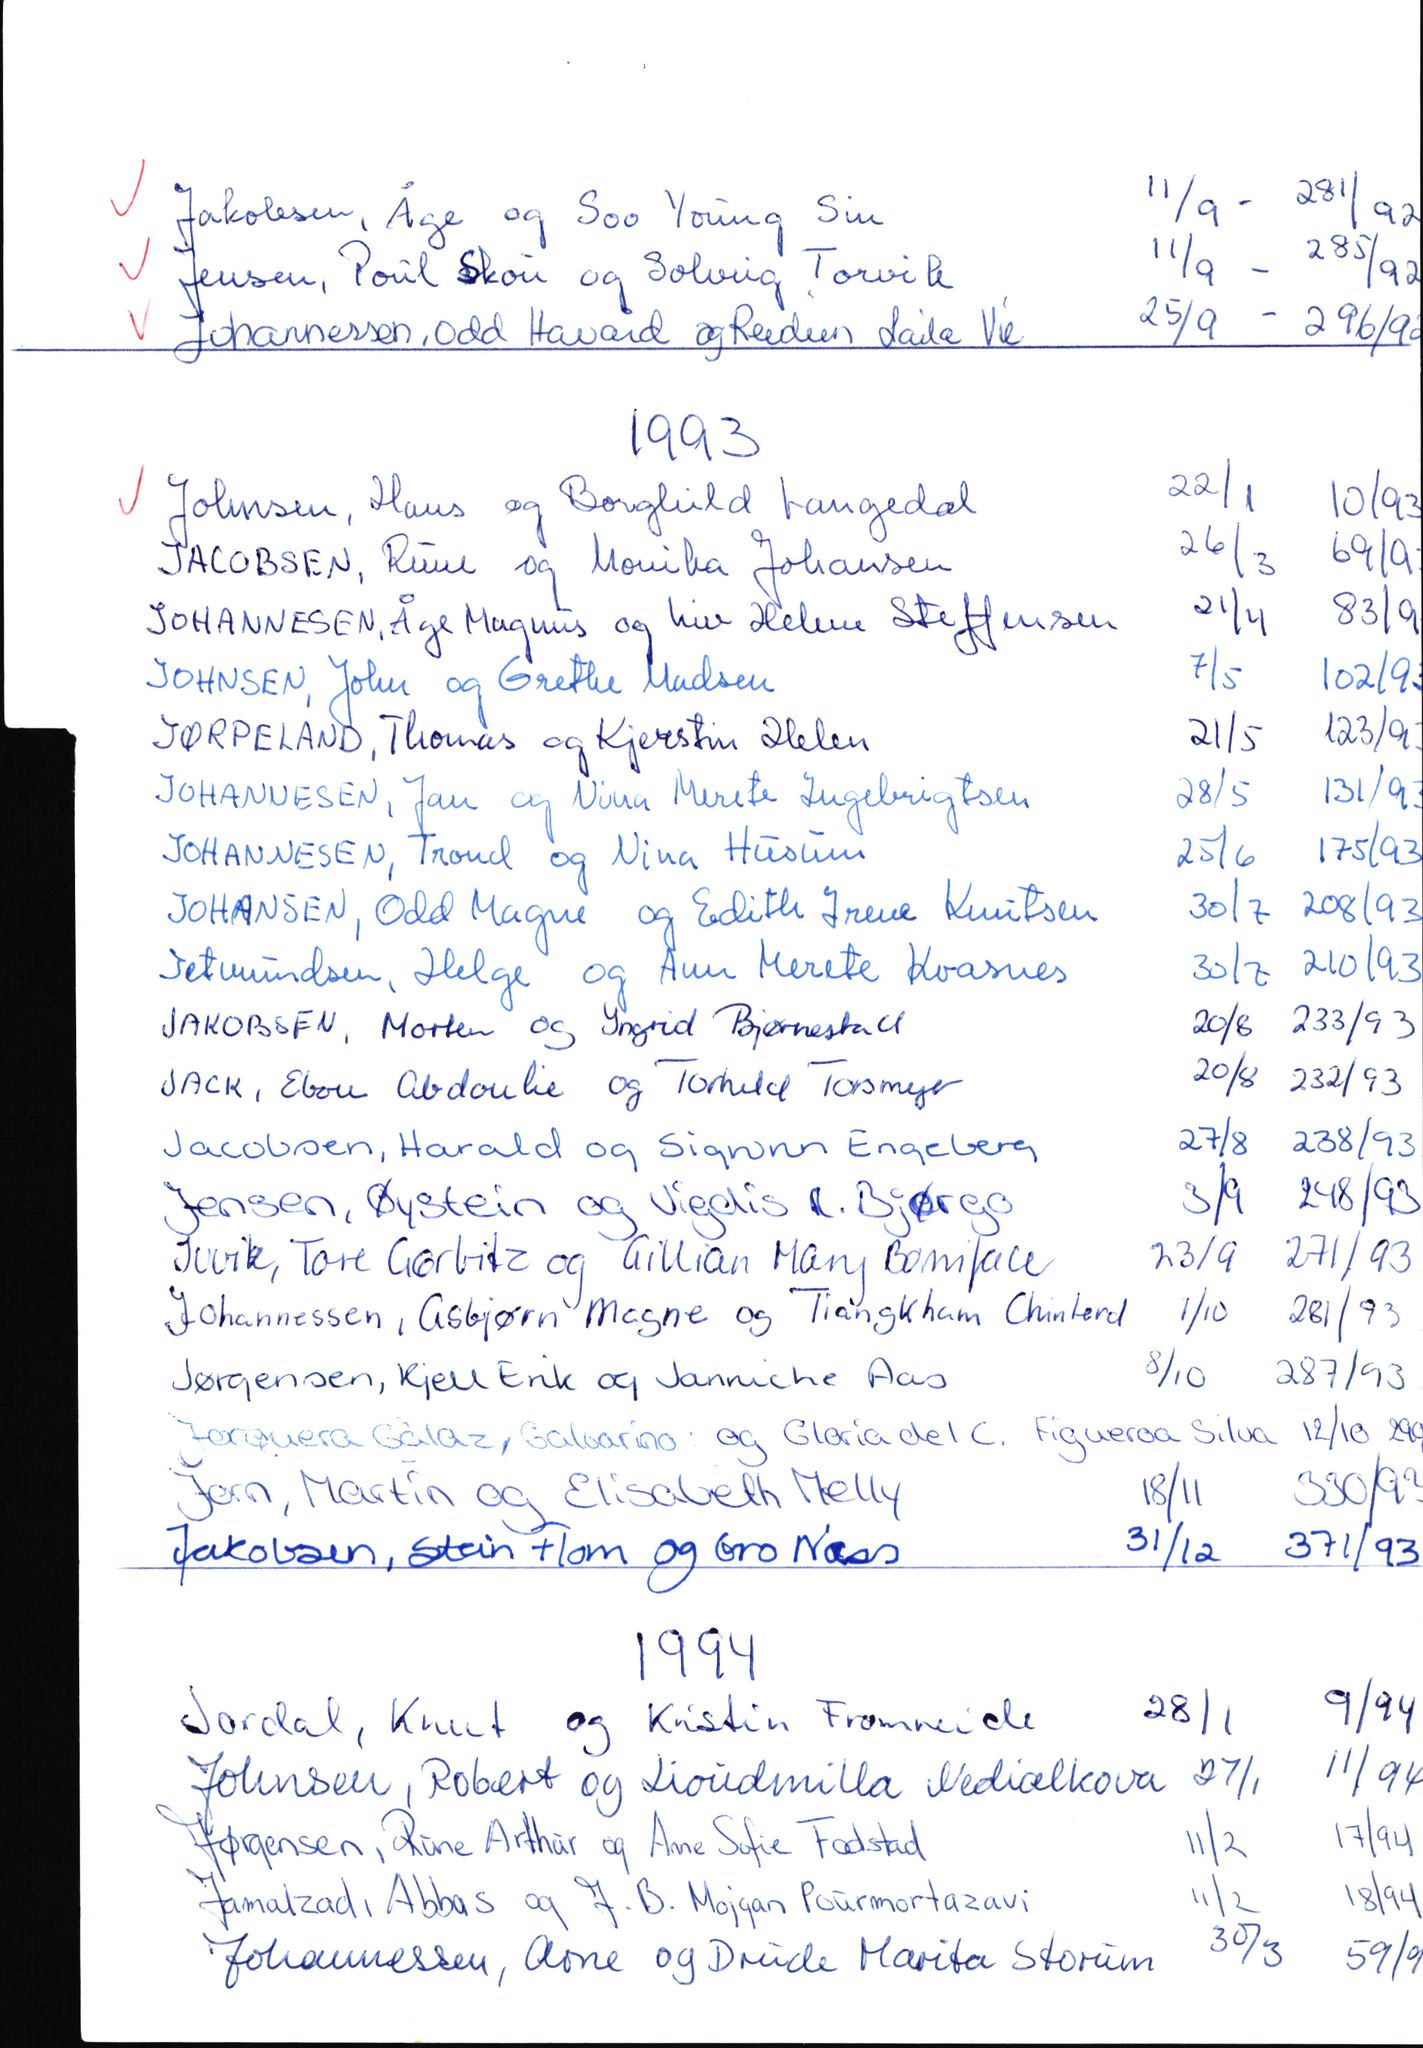 Jakobsen, Åge og Soo Young Sin 11/9 - 281/92
Jensen, Poul Skou og Solveig Torvik 11/9 - 285/92
Johannessen, Odd Havard og Reidun Laila Vie 25/9 - 296/92
1993
Johnsen, Hans og Borghild Langedal 22/1 10/93
JACOBSEN, Rune og Monika Johansen 26/3 69/93
JOHANNESEN, Åge Magnus og Liv Helene Steffensen 21/4 83/9
JOHNSEN, John og Grethe Madsen 7/5 102/93
JØRPELAND, Thomas og Kjerstin Helen 21/5 123/93
JOHANNESEN, Jan og Nina Merete Ingebrigtsen 28/5 131/93
JOHANNESEN, Trond og Nina Husum 25/6 175/93
JOHANSEN, Odd Magne og Edith Irene Knutsen 30/7 208/93
Jetmundsen, Helge og Ann Merete Kvasnes 30/7 210/93
JAKOBSEN, Morten og Ingrid Bjørnestad 20/8 233/93
JACK, Ebou Abdoulie og Torhild Torsmyr 20/8 232/93
Jacobsen, Harald og Sigrunn Engeberg 27/8 238/93
Jensen, Øystein og Vigdis R. Bjørgo 3/9 248/93
Juvik, Tore Garbitz og Gillian Mary Boniface 23/9 271/93
Johannessen, Asbjørn Magne og Tiangkham Chinterd 1/10 281/93
Jørgensen, Kjell Erik og Janniche Aas 8/10 287/93
Jorquera Galaz, Galvarino og Gloria del C. Figueroa Silva 12/10 290
Jorn, Martin og Elisabeth Melly 18/11 330/93
Jakobsen, Stein Flom og Gro Næss 31/12 371/93
1994
Jordal, Knut og Kristin Fromreide 28/1 9/94
Johnsen, Robert og Lioudmilla Nedialkova 27/1 11/94
Jørgensen, Rune Arthur og Ane Sofie Fodstad 11/2 17/94
Jamalzad, Abbas og J. B. Mojgan Pourmortazavi 11/2 18/94
Johannessen, Arne og Drude Marita Storum 30/3 59/9